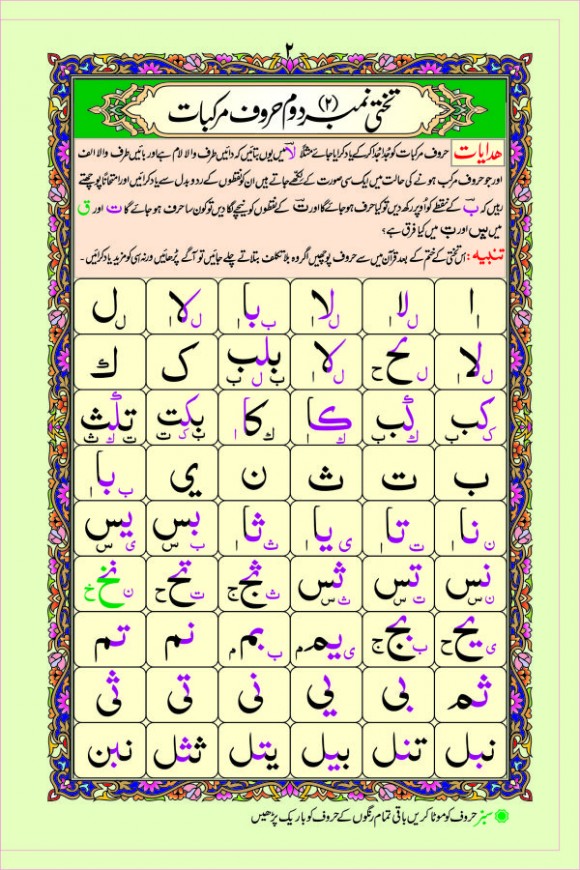 ۲
تختی نمبر (۲) دوم حروف مرکبات
هدایات حروف مرکبات کو جُدا جُدا کر کے یاد کرایا جائے مثلاً لا میں یوں بتائیں کہ دائیں طرف والا لام ہے اور بائیں طرف والا الف
اور جو حروف مرکب ہونے کی حالت میں ایک سی صورت کے لکھے جاتے ہیں ان کو نقطوں کے ردو بدل سے یاد کرائیں اور امتحاناً پوچھتے
رہیں کہ ب کے نقطے کو اُوپر رکھ دیں تو کیا حرف ہو جائے گا اور ت کے نقطوں کو نیچے لگا دیں تو کون سا حرف ہو جائے گا ت اور ق
میں اور میں کیا فرق ہے؟
تنبیہ : اس تختی کے ختم کے بعد قرآن میں سے حروف پوچھیں اگر وہ بلا تکلف بتلاتے چلے جائیں تو آگے پڑھائیں ورنہ ہی کو مزید یاد کرائیں۔
ا ا لا ل ا لا ل ا با ب ا لا ل ا ل ل
لا ل ا لح ل ح لا ل ا بلب ب ل ب ک ك
کب ک ب كب ك ب كا ك ا کا ك ا بکت ب ک ت تلث ت ل ث
ب ت ث ن ی با ب ا
نا ن ا تا ت ا یا ی ا ثا ث ا بس ب س یس ی س
نس ن س تس ت س ثس ث س ثج ث ج تح ت ح نخ ن خ
یح ی ح بج ب ج یم ی م بم ب م نم تم
ثم بی یی نی تی ثی
نبل تنل بیل یتل ثثل نبن
سبز حروف کو موٹا کریں باقی تمام رنگوں کے حروف کو باریک پڑھیں